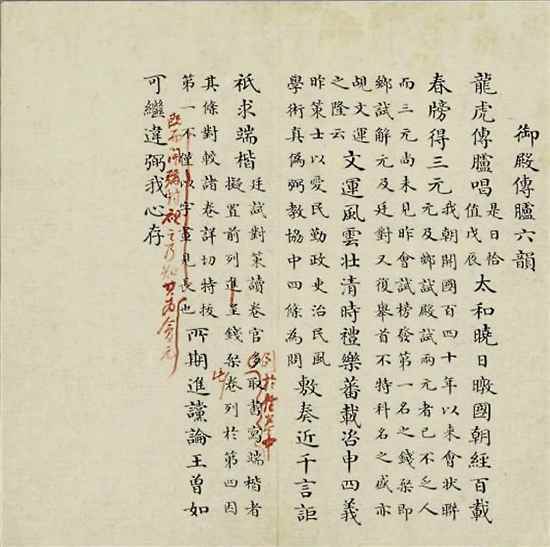 御殿傳臚六韻
龍虎傳臚唱
是日恰
值戊辰
太和曉日暾國朝經百載
春牓得三元
我朝開國百四十年以來會狀聯
元及鄉試殿試兩元者已不乏人
而三元尚未見昨會試榜發第一名之錢棨即
鄉試解元及廷對又復舉首不特科名之盛亦
覘文運
之隆云
文運風雲壯清時禮樂蕃載咨申四義
昨策士以愛民勤政吏治民風
學術真偽弼教協中四條為問
敷奏近千言詎
祇求端楷
廷試對策讀卷官多取書寫端楷者
擬置前列進呈錢棨卷列於第四因
其條對較諸卷詳切特拔
第一不僅以字畫見長也
所期進讜論王曾如
可繼違弼我心存
此
之乃知
為會元